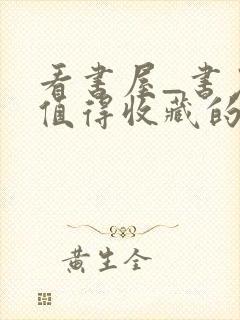 看书屋_书
值得收藏的
黄生全